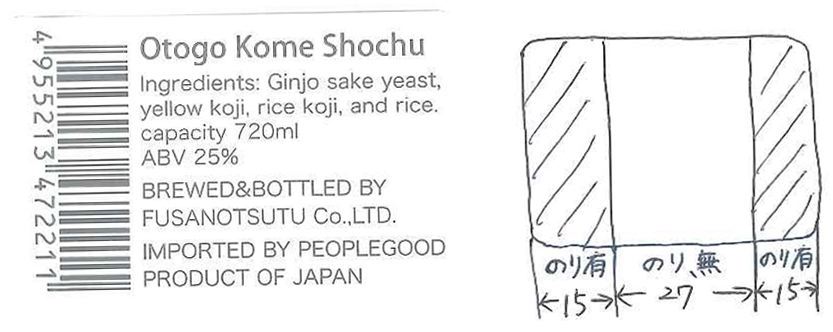 4955213472211
Otogo Kome Shochu
Ingredients: Ginjo sake yeast,
yellow koji, rice koji, and rice.
capacity 720ml
ABV 25%
BREWED&BOTTLED BY
FUSANOTSUTU Co.,LTD.
IMPORTED BY PEOPLEGOOD
PRODUCT OF JAPAN
のり有 のり無 のり有
15 27 15